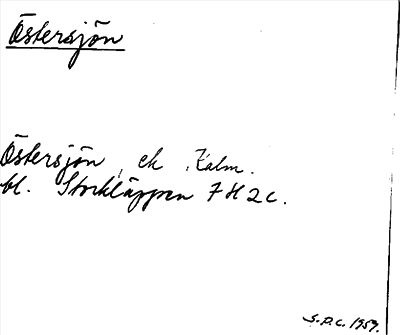 Östersjön
Östersjön, ek. Kalm.
bl. Storkläppen 7 H 2 c.
S.P.C. 1959.